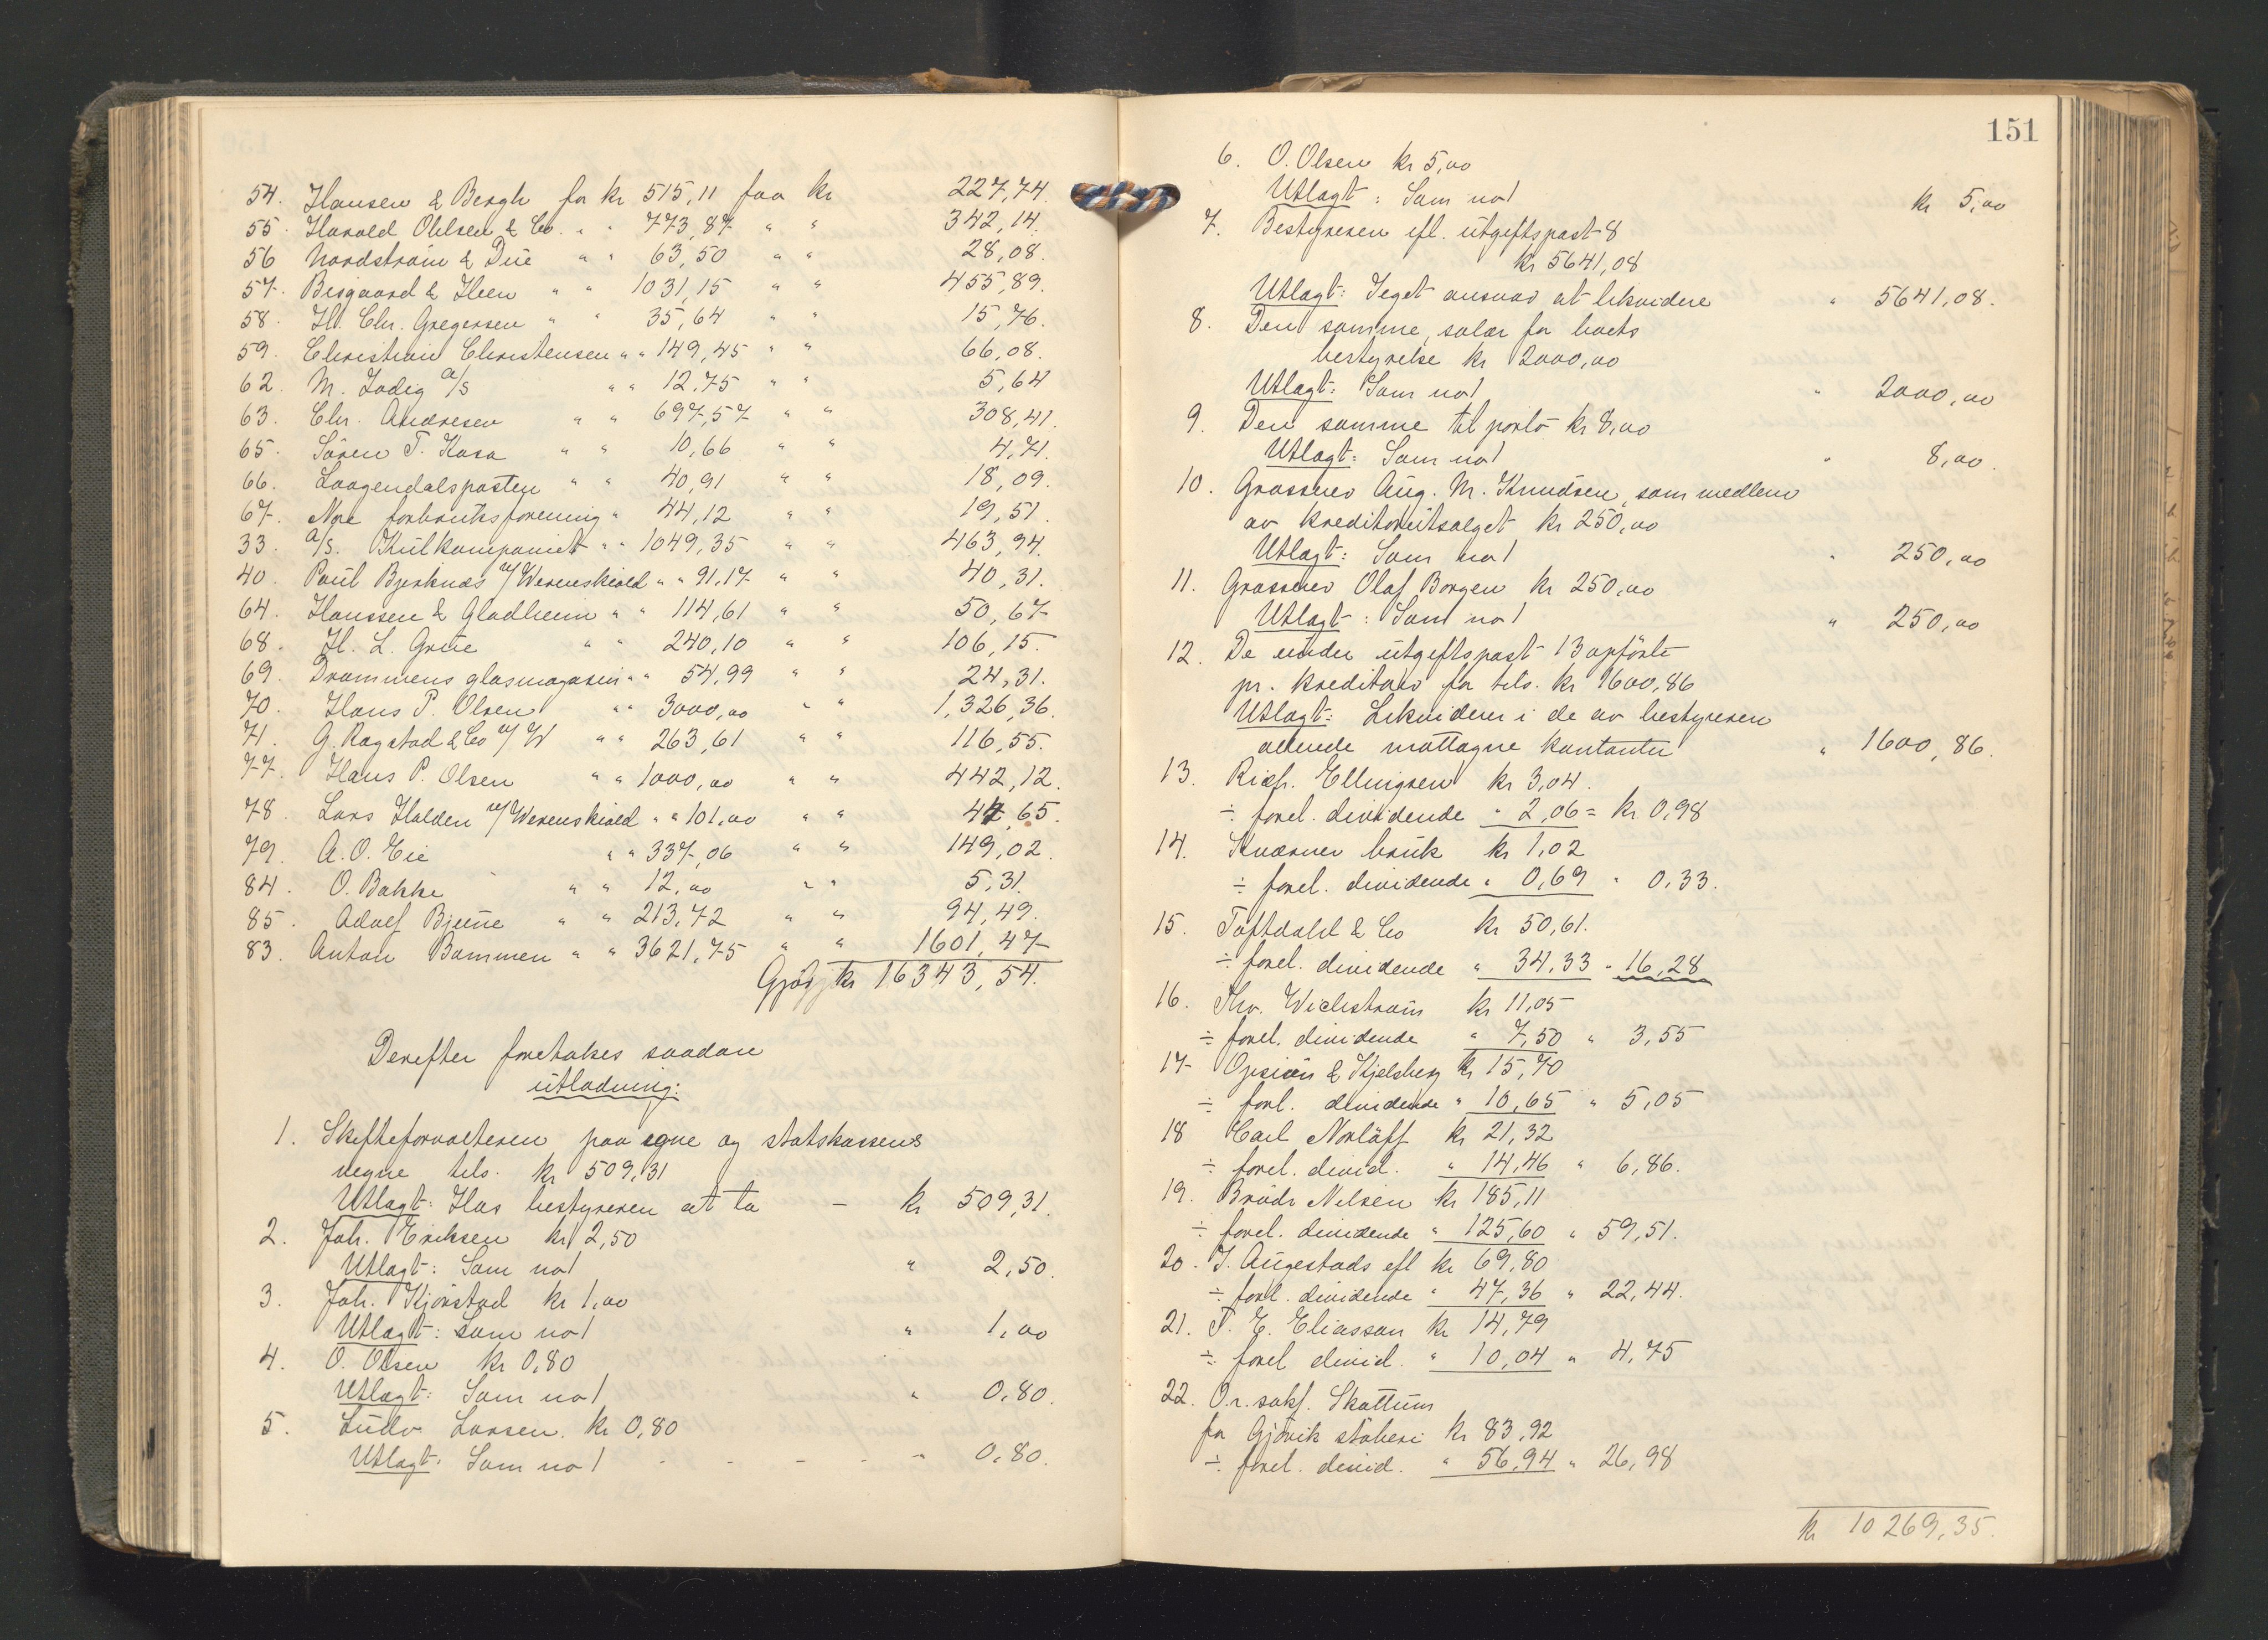 54. Hansen & Bergh for kr 515,11 faa kr 227,74.
55. Harald Ohlsen & Co. " " 773,87 " " 342,14.
56 Nordstrøm & Due " " 63,50 " " 28,08.
57. Bisgaard & Heen " " 1031,15 " " 455,89.
58. H. Chr. Gregersen " " 35,64 " " 15,76.
59. Christian Christensen " " 149,45 " " 66,08.
62. M. Zadig A/S " " 12,75 " " 5,64
63. Chr. Andresen " " 697,57 " " 308,41.
65. Sören T. Kasa " " 10,66 " " 4,71.
66. Laagendalsposten " " 40,91 " " 18,09.
67. Nore forbruksforening " 44,12 " " 19,51.
33. A/S. Kulkompaniet " " 1049,35 " " 463,94.
40. Paul Bjerknæs v/Werenskiold " " 91,17 " " 40,31.
64. Hanssen & Gladheim " " 114,61 " " 50,67
68. H. L. Grue " " 240,10 " " 106,15.
69. Drammens glasmagasin " " 54,99 " " 24,31.
70. Hans P. Olsen " " 3000,00 " " 1,326,36.
71. G. Ragstad & Co v/W " " 263,61 " " 116,55.
77. Hans P. Olsen " " 1000,00 " " 442,12.
78. Lars Halden v/Werenskiold " " 101,00 " " 44,65.
79. A. O. Eie " " 337,06 " " 149,02.
84. O. Bakke " " 12,00 " " 5,31.
85. Adolf Bjerne " " 213,72 " " 94,49.
83. Anton Bammen " " 3621,75 " " 1601,47
Gjör kr 16343,54.
Derefter foretakes saadan
utlodning:
1. Skifteforvalteren paa egne og statskassens
vegne tils. kr 509,31
Utlagt: Hos bestyreren at ta — kr 509,31.
2. Joh. Eriksen kr 2,50
Utlagt: Som no 1 " 2,50.
3. Joh. Kjönstad kr 1,00
Utlagt: Som no 1 " 1,00
4. O. Olsen kr 0,80
Utlagt: Som no 1 " 0,80.
5. Ludv Larsen. kr 0,80
Utlagt: Som no 1 - - - - " 0,80.
151
6. O. Olsen kr 5,00
Utlagt: Som no 1 kr 5,00
7. Bestyreren efl. utgiftspost 8
kr 5641,08
Utlagt: Eget ansvar at likvidere " 5641,08.
8. Den samme, salær for boets
bestyrelse kr 2000,00
Utlagt: Som no 1 " 2000,00
9. Den samme til porto kr 8,00
Utlagt: Som no 1 " 8,00.
10. Grosserer Aug. M. Knudsen, som medlem
av kreditorutvalget kr 250,00
Utlagt: Som no 1 " 250,00
11. Grosserer Olaf Borgen kr 250,00
Utlagt: Som no 1 " 250,00
12. De under utgiftspost 13 opförte
pr. kreditorer for tils. kr 1600,86
Utlagt: Likvideres i de av bestyreren
allerede mottagne kontanter " 1600,86.
13. Ellingsen kr 3,04.
÷ forel. dividende " 2,06 = kr 0,98
14. Kværner bruk kr 1,02
÷ forel. dividende " 0,69 " 0,33.
15. Toftdahl & Co kr 50,61.
÷ forel. dividende " 34,33 " 16,28
16. Thv. Wichstrøm kr 11,05
÷ forel. dividende " 7,50 " 3,55
17 & Kjelsberg kr 15,70
÷ forl. dividende " 10,65 " 5,05
18 Carl Norløff kr 21,32
÷ forel. divid. " 14,46 " 6,86.
19. Brødr Nilsen kr 185,11
÷ forel. dividende " 125,60 " 59,51.
20. J. Augestads efl kr 69,80
÷ forel. dividende " 47,36 " 22,44.
21. T. E. Eliasson kr 14,79
÷ forel divid. " 10,04 " 4,75
22. O.r.sakf. Skattum
for Gjøvik støberi kr 83,92
÷ forel. divid. " 56,94 " 26,98
kr 10269,35.